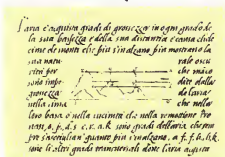 l'aria s'acquista gradi di grossezza in ogni grado de
la sua bassezza e della sua distantia e causa ch'le
cime de monti che piu s'inalzano, piu mostrano la
sua natu rale oscu
rità per che máco
sono impe dite dalla
grossezza de l'aria
nella cima che nella
loro basa ò nella vicinità che nella remotione Pro
vasi, p, d, s c, r, a, k sono gradi dell'aria che sem
pre s'assotiglian quanto piu s'inalzano, f, f, h, k,
sono li altri gradi transversali dove l'aria acquista